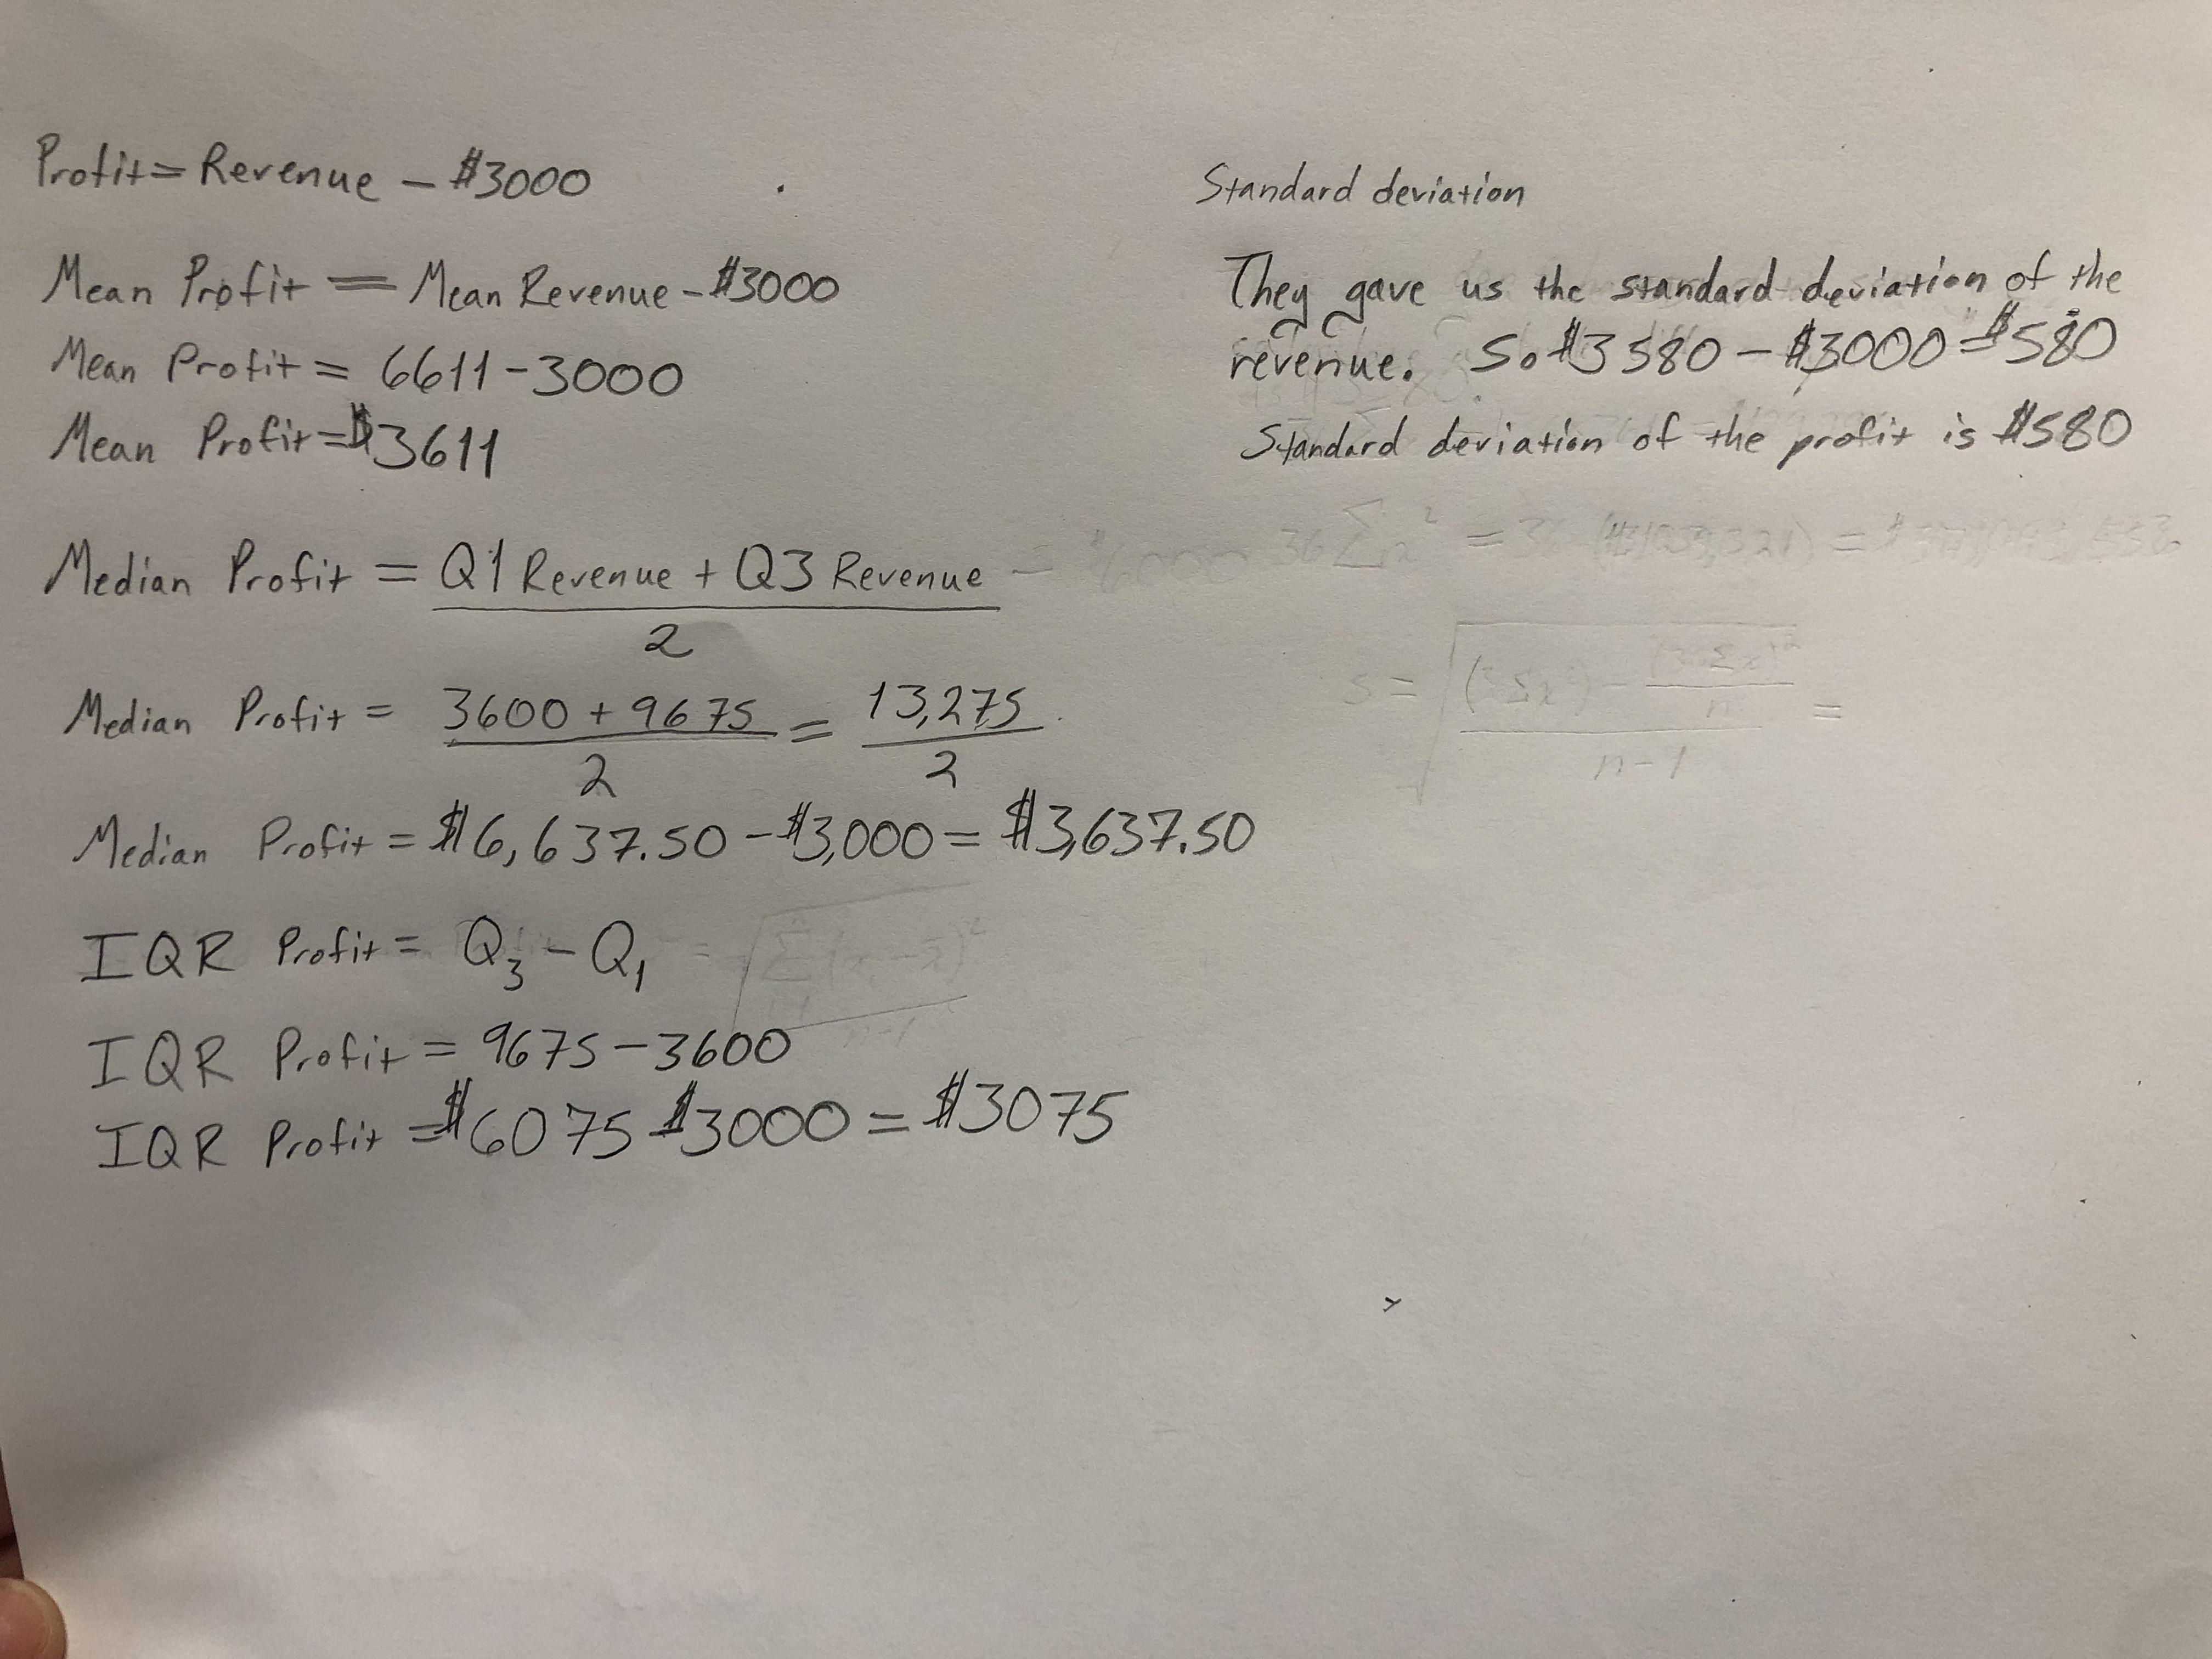 Profit = Revenue - $3000
Mean Profit = Mean Revenue - $3000
Mean Profit = 6611 - 3000
Mean Profit = $3611
Median Profit = Q1 Revenue + Q3 Revenue
2
Median Profit = 3600 + 9675 = 13,275
2 2
Median Profit = $6,637.50 - $3,000 = $3,637.50
IQR Profit = Q3 - Q1
IQR Profit = 9675 - 3600
IQR Profit = $6075 - $3000 = $3075
Standard deviation
They gave us the standard deviation of the
revenue. So $3580 - $3000 = $580
Standard deviation of the profit is $580
n-1